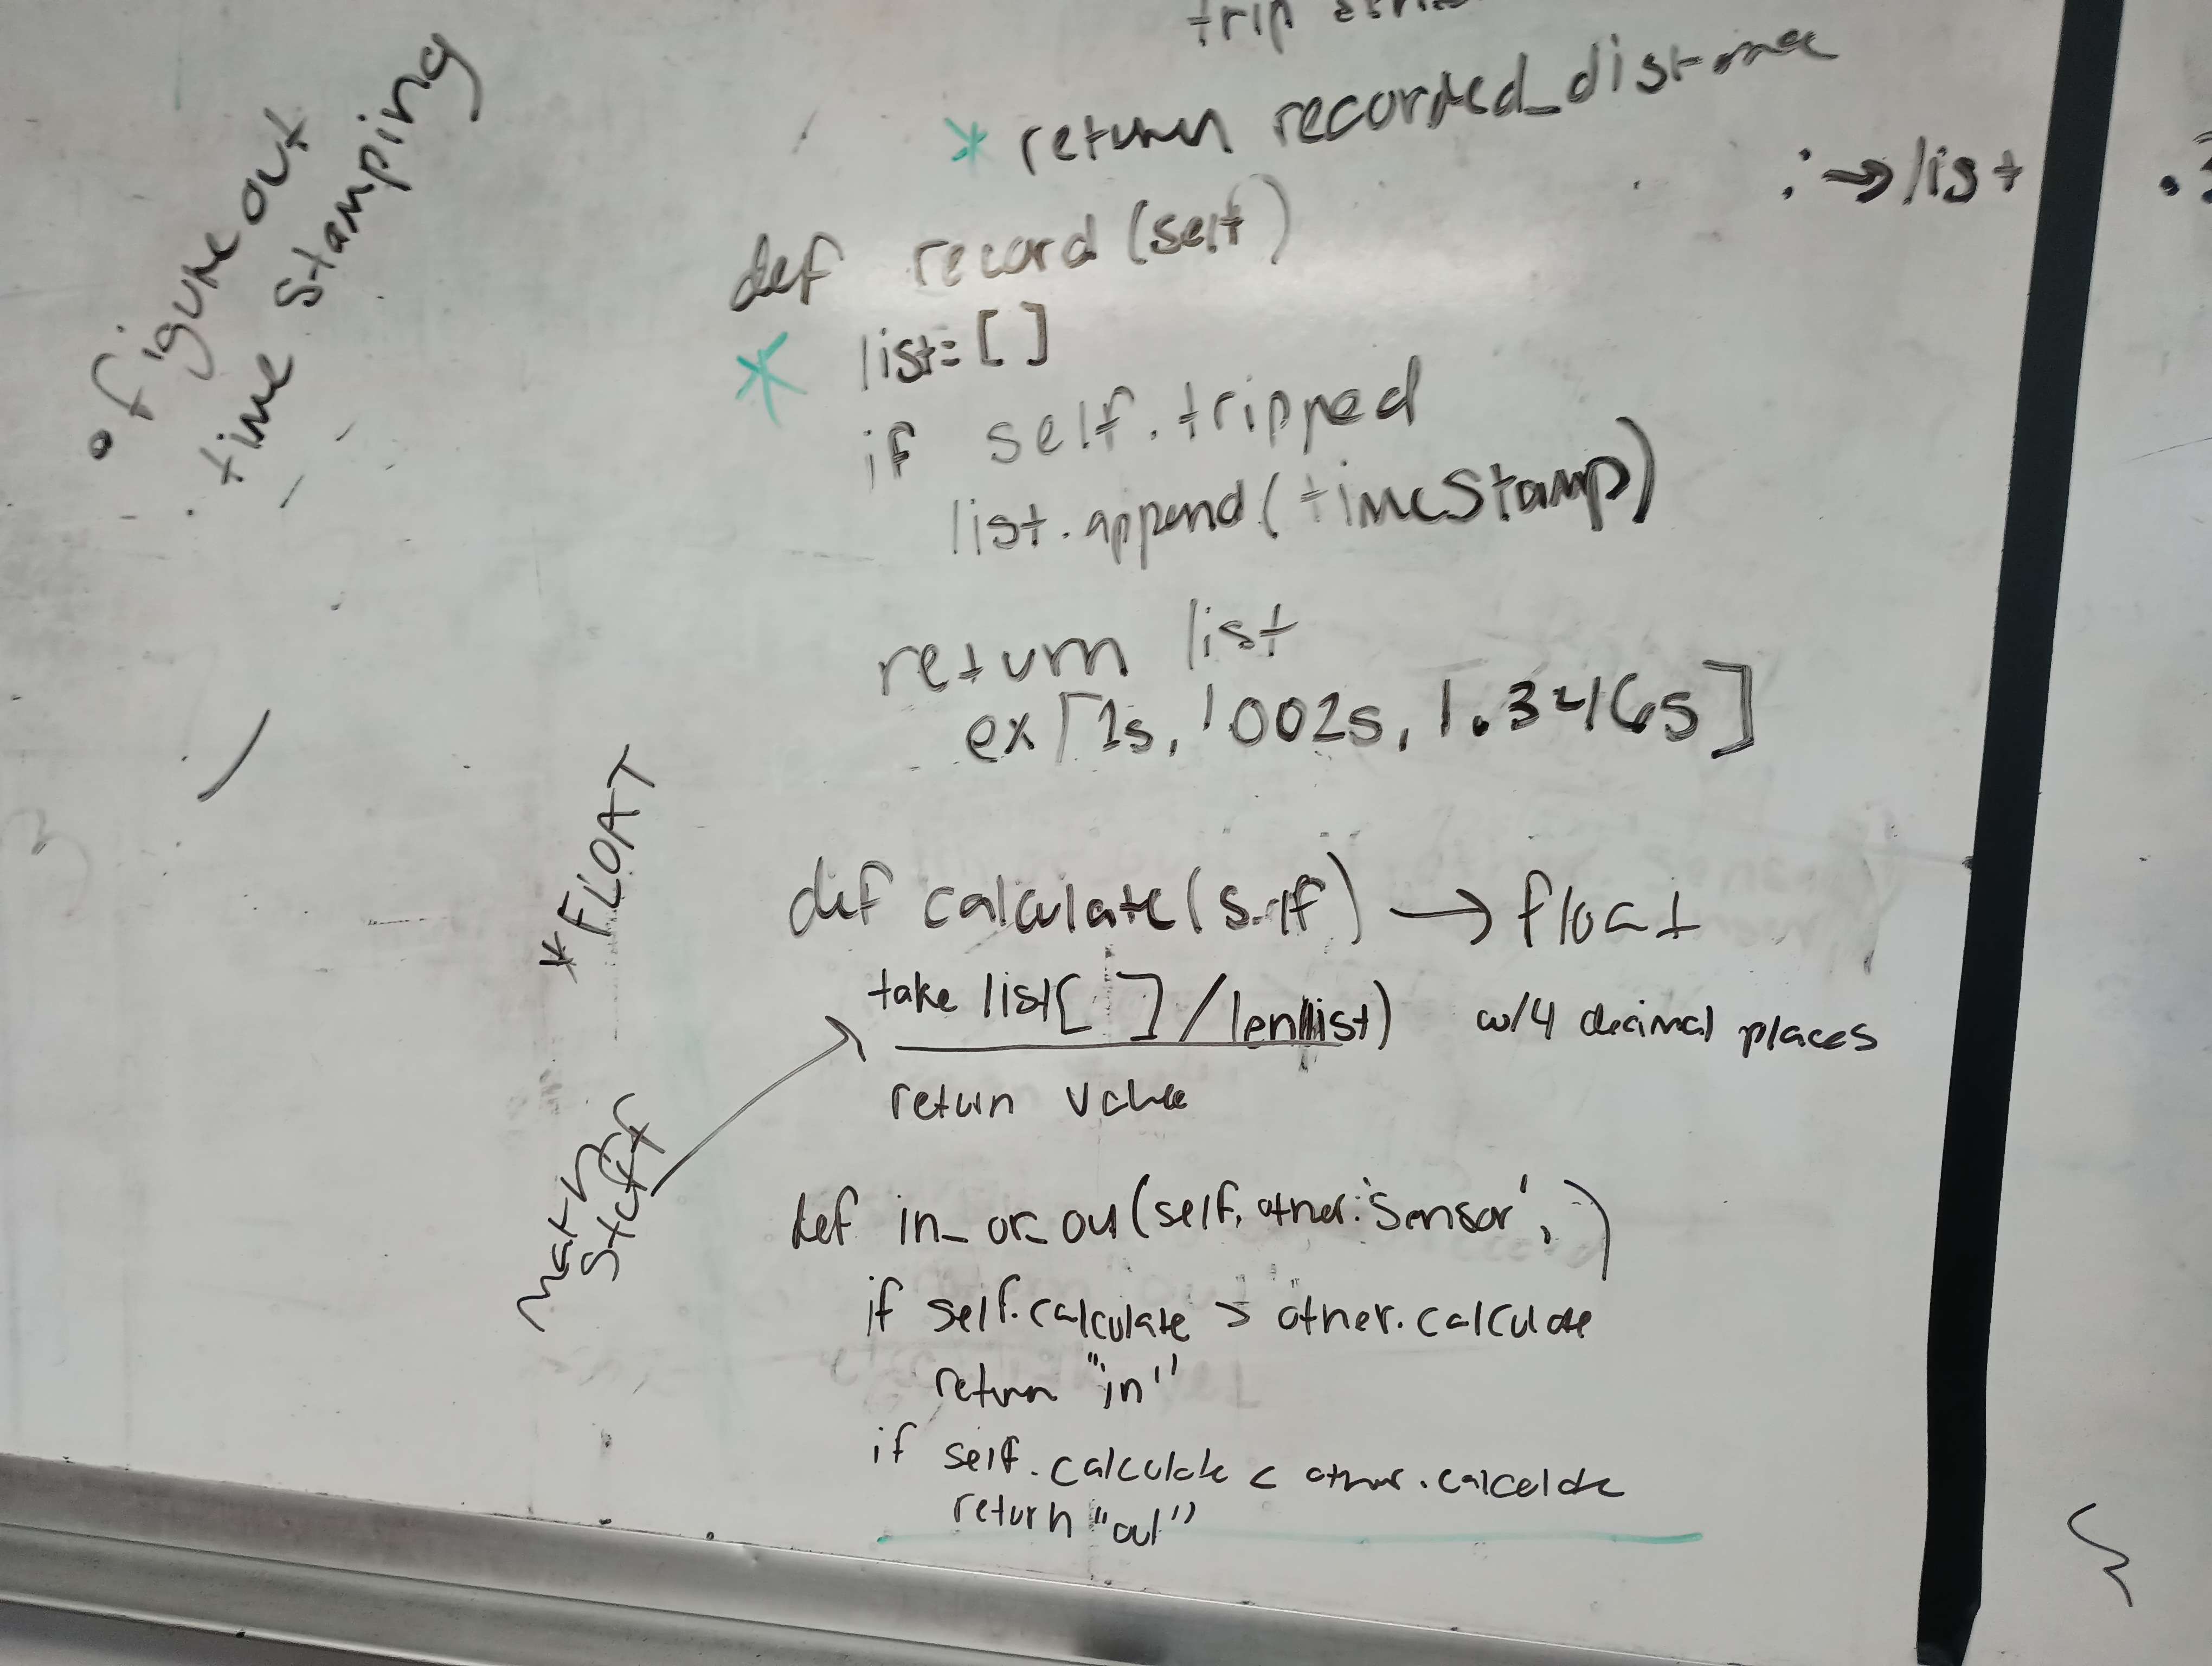 trip
* return recorded_distance
: → list
def record (self)
* list = [ ]
if self.tripped
list.append(timeStamp)
return list
ex [1s, 1.002s, 1.3246s]
• figure out
time stamping
* FLOAT
def calculate(self) → float
take list[ ] / len(list) w/4 decimal places
return value
Math
Stuff
def in_or_out(self, other: 'Sensor', )
if self.calculate > other.calculate
return "in"
if self.calculate < other.calculate
return "out"